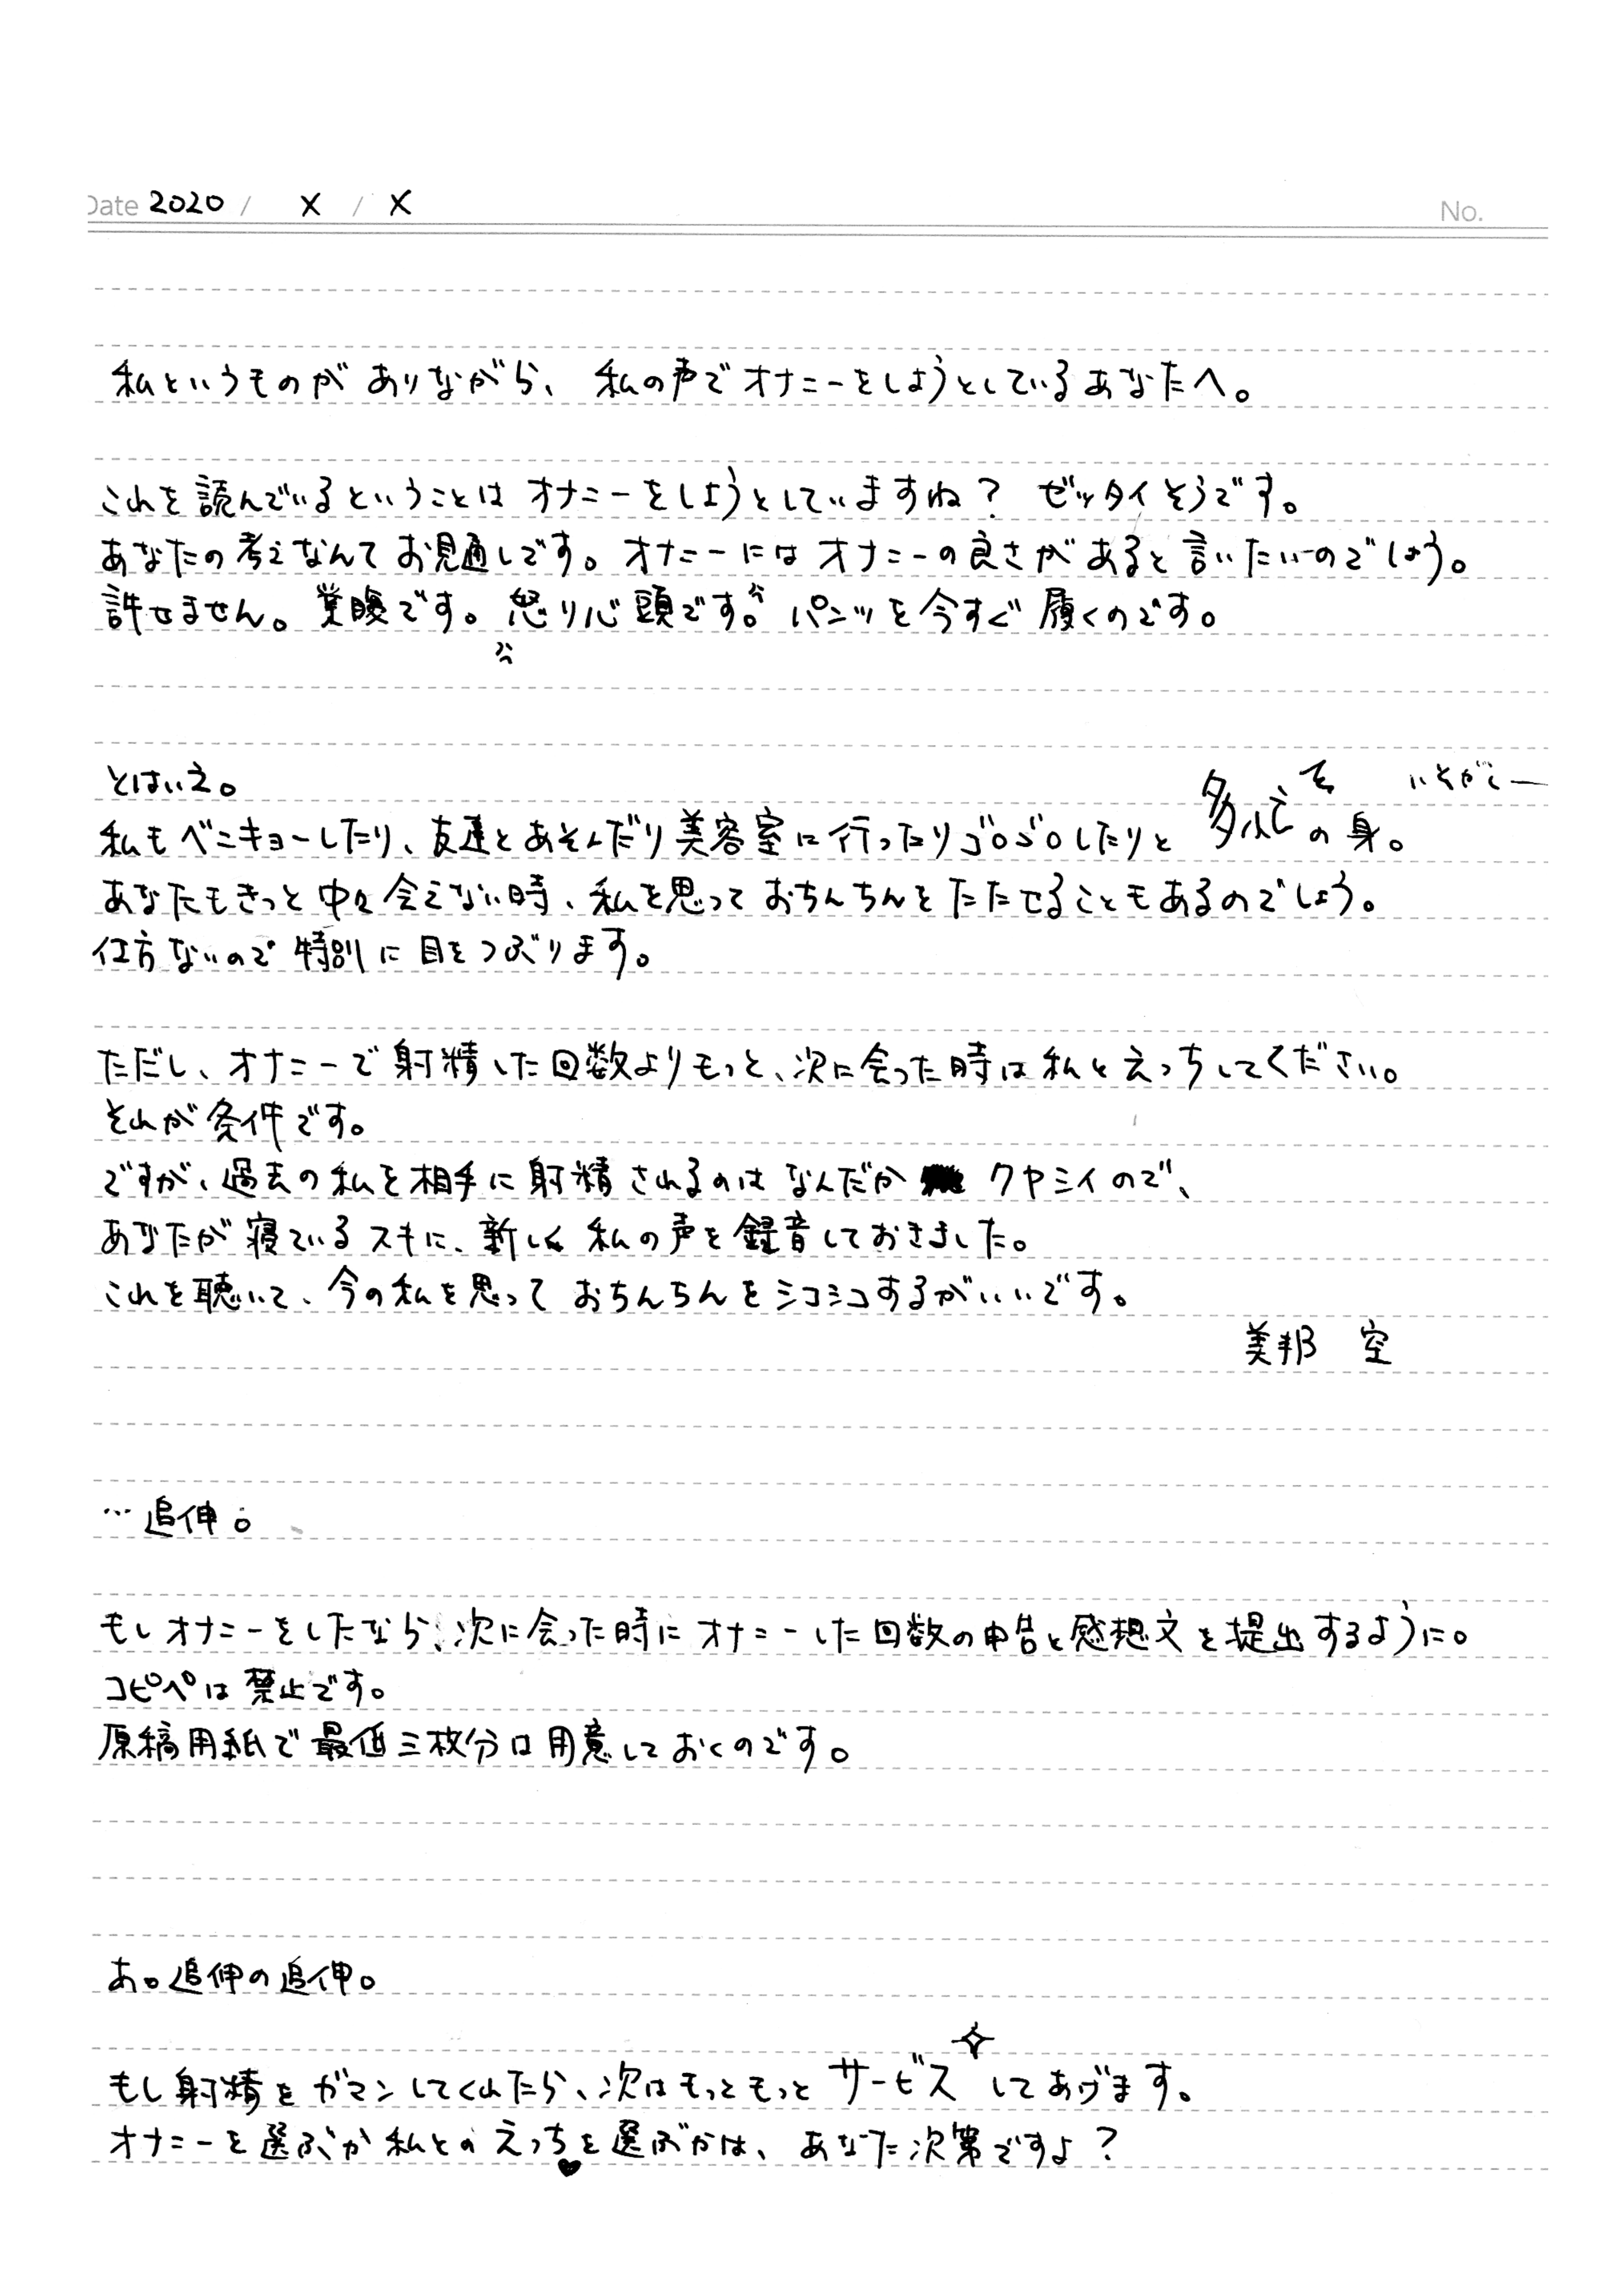 Date 2020 / X / X
No.
私というものがありながら、私の声でオナニーをしようとしているあなたへ。
これを読んでいるということはオナニーをしようとしていますね？ ゼッタイそうです。
あなたの考えなんてお見通しです。オナニーにはオナニーの良さがあると言いたいのでしょう。
許せません。業腹です。怒り心頭です。パンツを今すぐ履くのです。
とはいえ。
いそがしー
私もベンキョーしたり、友達とあそんだり美容室に行ったりゴロゴロしたりと多忙の身。
あなたもきっと中々会えない時、私を思っておちんちんをたたせることもあるのでしょう。
仕方ないので特別に目をつぶります。
ただし、オナニーで射精した回数よりもっと、次に会った時は私とえっちしてください。
それが条件です。
ですが、過去の私を相手に射精されるのはなんだか クヤシイので、
あなたが寝ているスキに、新しく私の声を録音しておきました。
これを聴いて、今の私を思っておちんちんをシコシコするがいいです。
美邦 空
…追伸。
もしオナニーをしたなら、次に会った時にオナニーした回数の申告と感想文を提出するように。
コピペは禁止です。
原稿用紙で最低三枚分は用意しておくのです。
あ。追伸の追伸。
もし射精をガマンしてくれたら、次はもっともっとサービスしてあげます。
オナニーを選ぶか私とのえっちを選ぶかは、あなた次第ですよ？